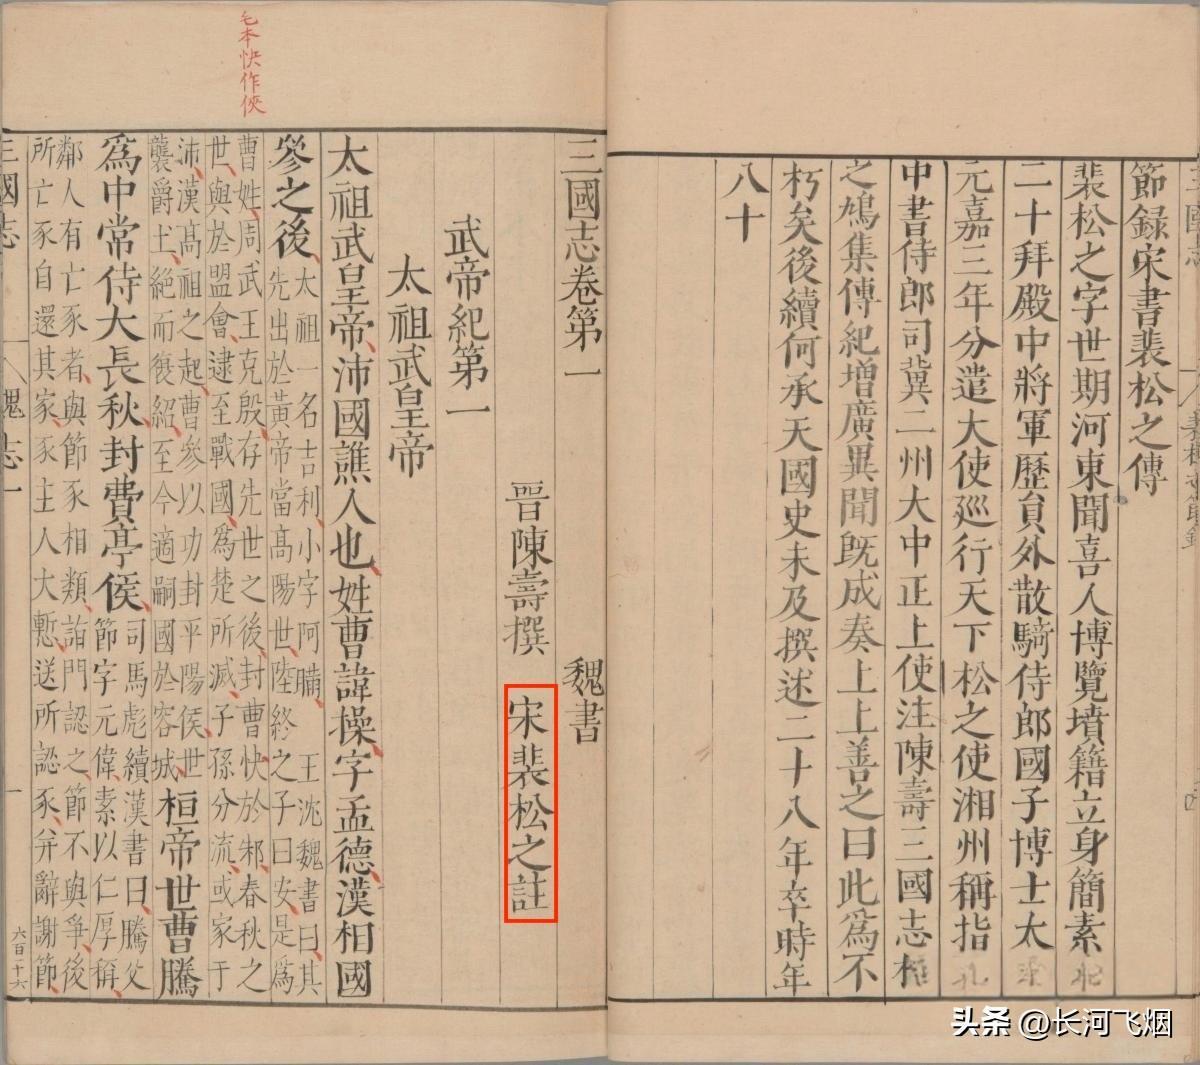 節録宋書裴松之傳
裴松之字世期河東聞喜人博覽墳籍立身簡素
二十拜殿中將軍歷貟外散騎侍郎國子博士太
元嘉三年分遣大使廵行天下松之使湘州稱指
中書侍郎司冀二州大中正上使注陳壽三國志松
之鳩集傳紀增廣異聞旣成奏上上善之曰此爲不
朽矣後續何承天國史未及撰述二十八年卒時年
八十
毛本快作俠
三國志卷第一
魏書
晉陳壽撰
宋裴松之註
武帝紀第一
太祖武皇帝
太祖武皇帝沛國譙人也姓曹諱操字孟德漢相國
參之後
太祖一名吉利小字阿瞞
王沈魏書曰其
先出於黃帝當高陽世陸終之子曰安是爲
曹姓周武王克殷存先世之後封曹快於邾春秋之
世與於盟會逮至戰國爲楚所滅子孫分流或家于
沛漢高祖之起曹參以功封平陽侯世
襲爵土絕而復紹至今適嗣國於容城
桓帝世曹騰
爲中常侍大長秋封費亭侯
司馬彪續漢書曰騰父
節字元偉素以仁厚稱
鄰人有亡豕者與節豕相類詣門認之節不與爭後
所亡豕自還其家豕主人大慙送所認豕并辭謝節
三國志
魏志一
一
六百十六
头条 @长河飞烟